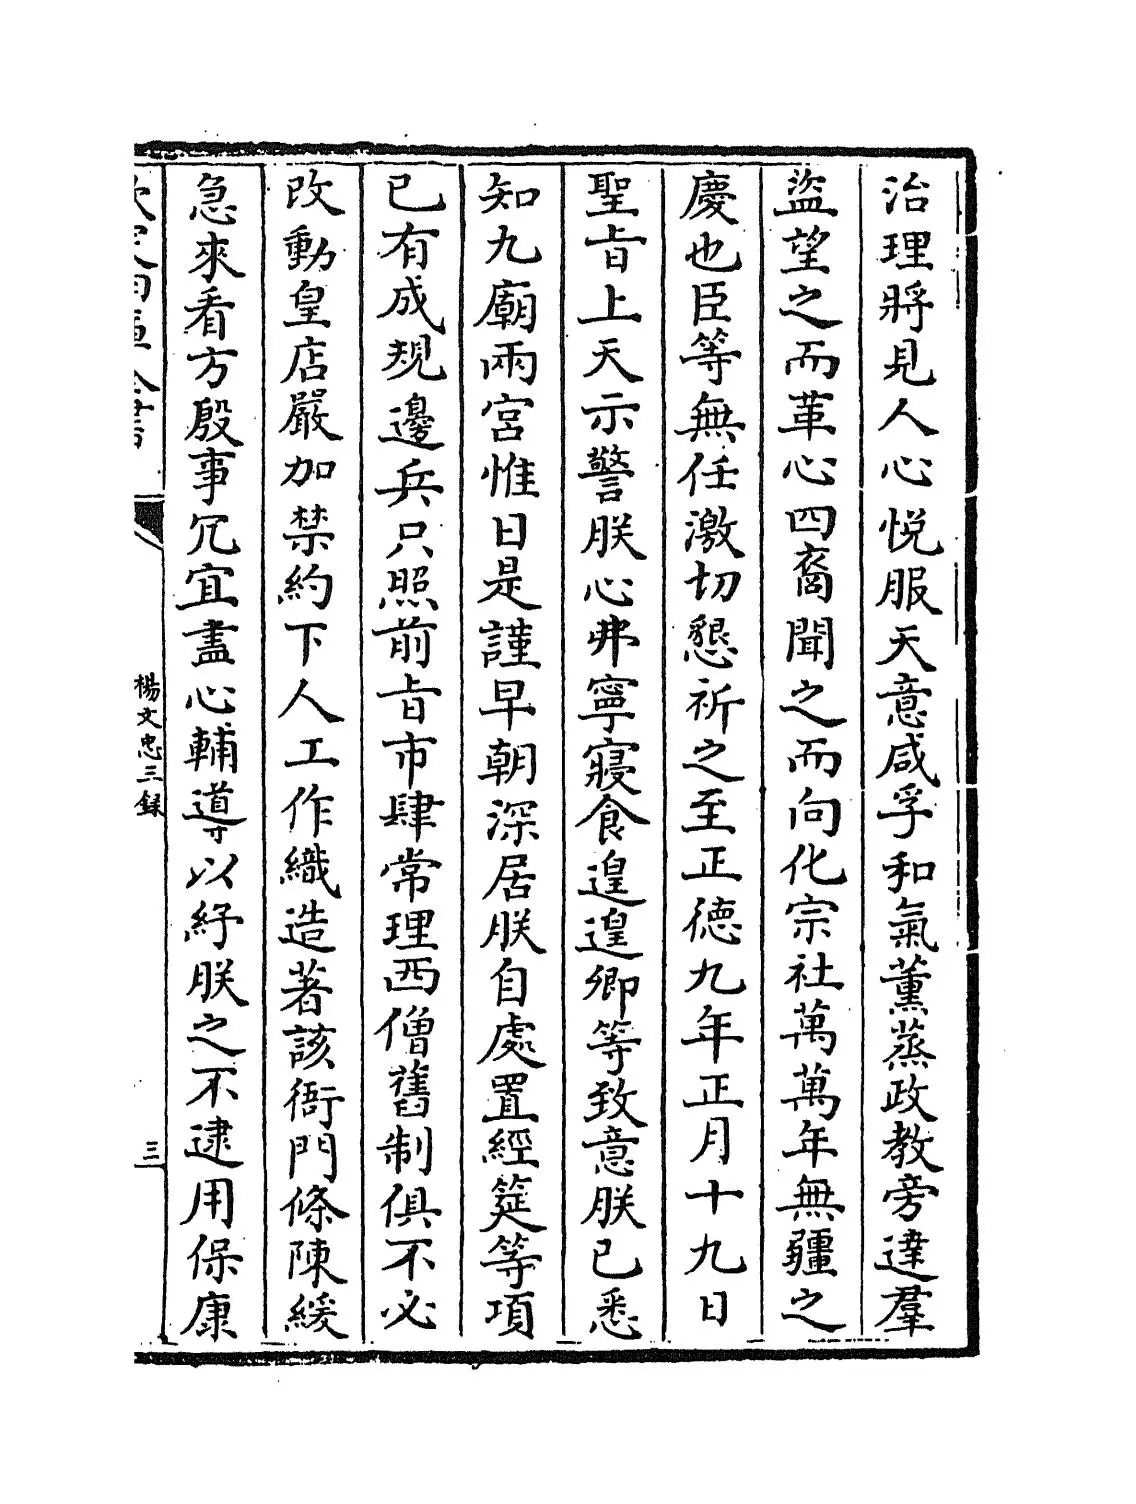 治理將見人心悅服天意咸孚和氣薰蒸政教旁達羣
盜望之而革心四裔聞之而向化宗社萬萬年無疆之
慶也臣等無任激切懇祈之至正德九年正月十九日
聖旨上天示警朕心弗寧寢食遑遑卿等致意朕已悉
知九廟兩宮惟日是謹早朝深居朕自處置經筵等項
已有成規邊兵只照前旨市肆常理西僧舊制俱不必
改動皇店嚴加禁約下人工作織造著該衙門條陳緩
急來看方殷事冗宜盡心輔導以紓朕之不逮用保康
楊文忠三録
三